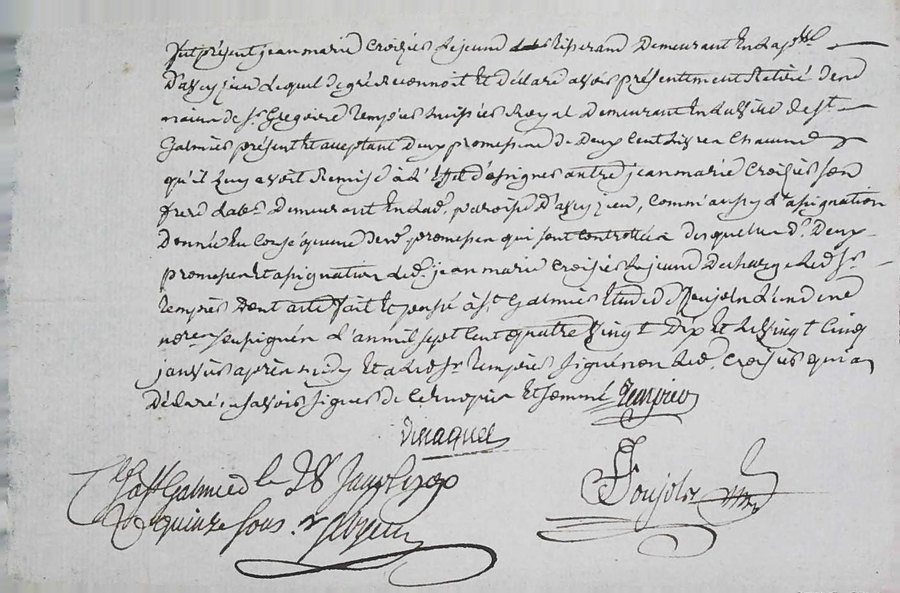 fut présent jean marie Croisier le jeune demeurant En la psse
D'aveyzieu lequel de gré Reconnoit Et déclare avoir présentement Retiré des
mains de Sr Gregoire Tempier huissier Royal Demeurant En la ville de st
Galmier présent Et acceptant Deux promesses de Deux Cent Livres Chacune
qu'il luy avoit Remise à L'Effet d'assigner autre jean marie Croisier son
frere Labr Demeurant En lad. paroisse D'aveyzieu, Comm'aussy L'assignation
Donnée En Conséquence desd. promesses qui sont Controllées Desquelles d. Deux
promesses Et assignation led. jean marie Croisier Le jeune Décharge led. Sr
Tempier Dont acte fait Et passé à St Galmier Etude de Poujol L'un des
nores soussignés L'an mil sept Cent quatre Vingt Dix Et le Vingt Cinq
janvier après midy Et a led. Sr Tempier signé non led. Croisier qui a
Déclaré ne savoir signer de Ce Enquis Et sommé Tempier
Poujol nre
Cé a st Galmier le 28 Janv 1790
R quinze sous